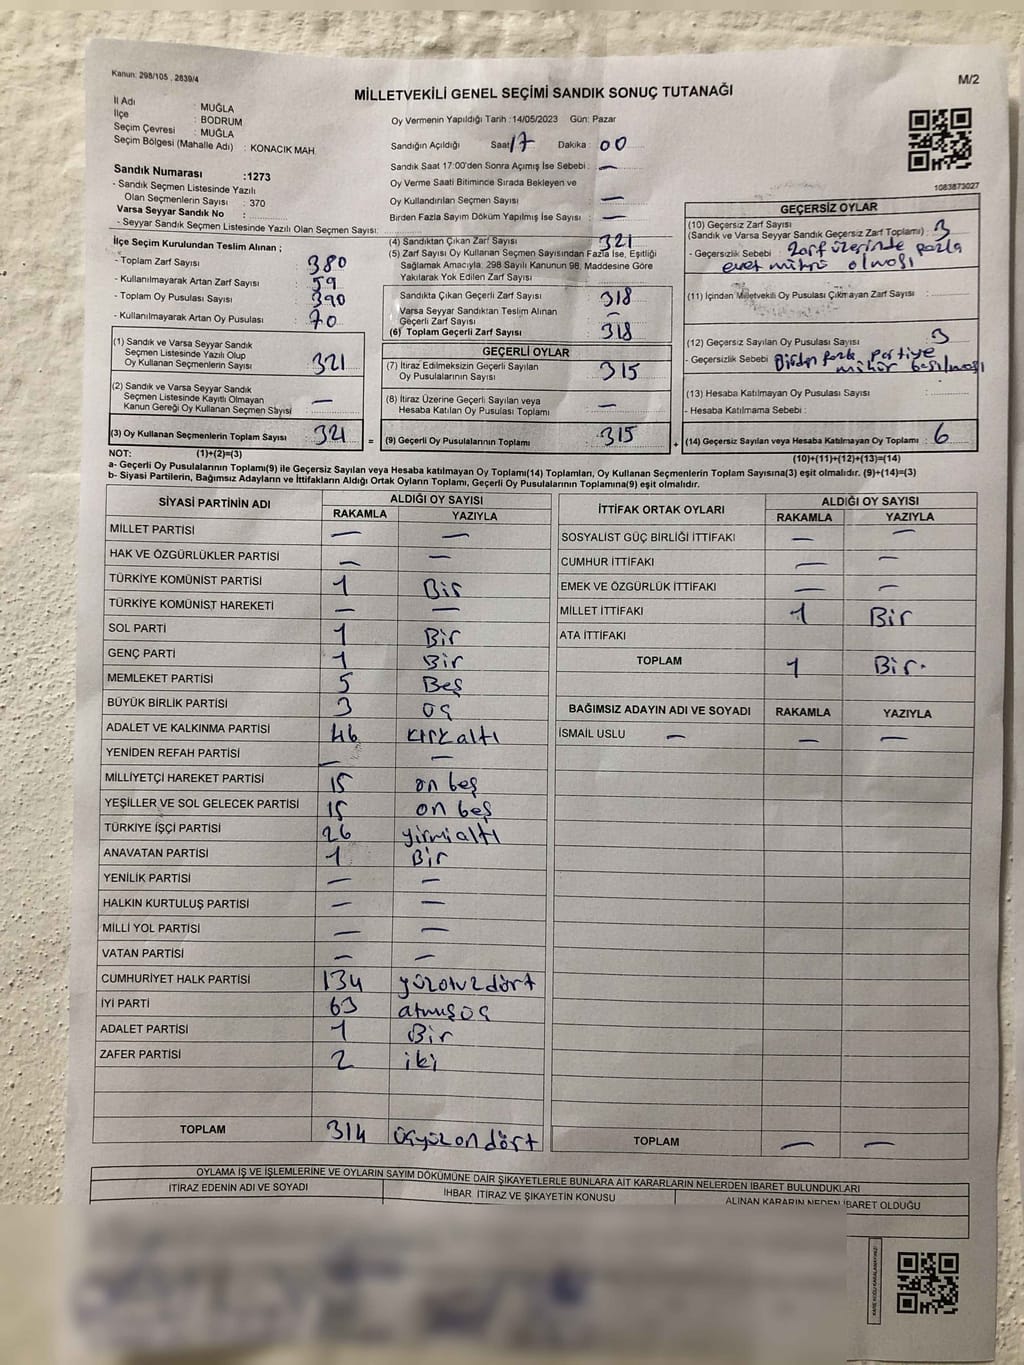 Kanun: 298/105 , 2839/4
M/2
MİLLETVEKİLİ GENEL SEÇİMİ SANDIK SONUÇ TUTANAĞI
İl Adı : MUĞLA
İlçe : BODRUM
Seçim Çevresi : MUĞLA
Seçim Bölgesi (Mahalle Adı) : KONACIK MAH.
Sandık Numarası :1273
- Sandık Seçmen Listesinde Yazılı
Olan Seçmenlerin Sayısı : 370
Varsa Seyyar Sandık No :
- Seyyar Sandık Seçmen Listesinde Yazılı Olan Seçmen Sayısı:
Oy Vermenin Yapıldığı Tarih :14/05/2023 Gün: Pazar
Sandığın Açıldığı Saat 17 Dakika : 00
Sandık Saat 17:00'den Sonra Açımış İse Sebebi : —
Oy Verme Saati Bitiminde Sırada Bekleyen ve
Oy Kullandırılan Seçmen Sayısı : —
Birden Fazla Sayım Döküm Yapılmış İse Sayısı : —
1083873027
İlçe Seçim Kurulundan Teslim Alınan ;
- Toplam Zarf Sayısı : 380
- Kullanılmayarak Artan Zarf Sayısı : 59
- Toplam Oy Pusulası Sayısı : 390
- Kullanılmayarak Artan Oy Pusulası : 70
(1) Sandık ve Varsa Seyyar Sandık
Seçmen Listesinde Yazılı Olup
Oy Kullanan Seçmenlerin Sayısı : 321
(2) Sandık ve Varsa Seyyar Sandık
Seçmen Listesinde Kayıtlı Olmayan
Kanun Gereği Oy Kullanan Seçmen Sayısı : —
(3) Oy Kullanan Seçmenlerin Toplam Sayısı : 321
(4) Sandıktan Çıkan Zarf Sayısı : 321
(5) Zarf Sayısı Oy Kullanan Seçmen Sayısından Fazla İse, Eşitliği
Sağlamak Amacıyla, 298 Sayılı Kanunun 98. Maddesine Göre
Yakılarak Yok Edilen Zarf Sayısı :
Sandıkta Çıkan Geçerli Zarf Sayısı : 318
Varsa Seyyar Sandıktan Teslim Alınan
Geçerli Zarf Sayısı : —
(6) Toplam Geçerli Zarf Sayısı : 318
GEÇERLİ OYLAR
(7) İtiraz Edilmeksizin Geçerli Sayılan
Oy Pusulalarının Sayısı : 315
(8) İtiraz Üzerine Geçerli Sayılan veya
Hesaba Katılan Oy Pusulası Toplamı : —
= (9) Geçerli Oy Pusulalarının Toplamı : 315
GEÇERSİZ OYLAR
(10) Geçersiz Zarf Sayısı
(Sandık ve Varsa Seyyar Sandık Geçersiz Zarf Toplamı) : 3
- Geçersizlik Sebebi : Zarf üzerinde fazla
evet mührü olması
(11) İçinden Milletvekili Oy Pusulası Çıkmayan Zarf Sayısı :
(12) Geçersiz Sayılan Oy Pusulası Sayısı : 3
- Geçersizlik Sebebi : Birden fazla partiye
mühür basılması
(13) Hesaba Katılmayan Oy Pusulası Sayısı :
- Hesaba Katılmama Sebebi :
+ (14) Geçersiz Sayılan veya Hesaba Katılmayan Oy Toplamı : 6
NOT: (1)+(2)=(3)
(10)+(11)+(12)+(13)=(14)
a- Geçerli Oy Pusulalarının Toplamı(9) ile Geçersiz Sayılan veya Hesaba katılmayan Oy Toplamı(14) Toplamları, Oy Kullanan Seçmenlerin Toplam Sayısına(3) eşit olmalıdır. (9)+(14)=(3)
b- Siyasi Partilerin, Bağımsız Adayların ve İttifakların Aldığı Ortak Oyların Toplamı, Geçerli Oy Pusulalarının Toplamına(9) eşit olmalıdır.
SİYASİ PARTİNİN ADI ALDIĞI OY SAYISI
RAKAMLA YAZIYLA
MİLLET PARTİSİ — —
HAK VE ÖZGÜRLÜKLER PARTİSİ — —
TÜRKİYE KOMÜNİST PARTİSİ 1 Bir
TÜRKİYE KOMÜNİST HAREKETİ — —
SOL PARTİ 1 Bir
GENÇ PARTİ 1 Bir
MEMLEKET PARTİSİ 5 Beş
BÜYÜK BİRLİK PARTİSİ 3 üç
ADALET VE KALKINMA PARTİSİ 46 kırkaltı
YENİDEN REFAH PARTİSİ — —
MİLLİYETÇİ HAREKET PARTİSİ 15 on beş
YEŞİLLER VE SOL GELECEK PARTİSİ 15 on beş
TÜRKİYE İŞÇİ PARTİSİ 26 yirmialtı
ANAVATAN PARTİSİ 1 Bir
YENİLİK PARTİSİ — —
HALKIN KURTULUŞ PARTİSİ — —
MİLLİ YOL PARTİSİ — —
VATAN PARTİSİ — —
CUMHURİYET HALK PARTİSİ 134 yüzotuzdört
İYİ PARTİ 63 atmışüç
ADALET PARTİSİ 1 Bir
ZAFER PARTİSİ 2 iki
TOPLAM 314 üçyüzondört
İTTİFAK ORTAK OYLARI ALDIĞI OY SAYISI
RAKAMLA YAZIYLA
SOSYALİST GÜÇ BİRLİĞİ İTTİFAKI — —
CUMHUR İTTİFAKI — —
EMEK VE ÖZGÜRLÜK İTTİFAKI — —
MİLLET İTTİFAKI 1 Bir
ATA İTTİFAKI
TOPLAM 1 Bir.
BAĞIMSIZ ADAYIN ADI VE SOYADI RAKAMLA YAZIYLA
İSMAİL USLU — — —
TOPLAM — —
OYLAMA İŞ VE İŞLEMLERİNE VE OYLARIN SAYIM DÖKÜMÜNE DAİR ŞİKAYETLERLE BUNLARA AİT KARARLARIN NELERDEN İBARET BULUNDUKLARI
İTİRAZ EDENİN ADI VE SOYADI
İHBAR İTİRAZ VE ŞİKAYETİN KONUSU
ALINAN KARARIN NEDEN İBARET OLDUĞU
KARE KODU KARALAMAYINIZ!